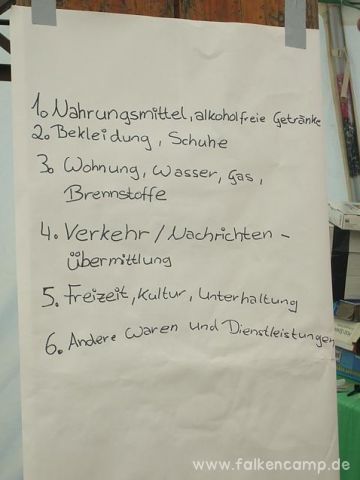 1. Nahrungsmittel, alkoholfreie Getränke
2. Bekleidung, Schuhe
3. Wohnung, Wasser, Gas,
Brennstoffe
4. Verkehr / Nachrichten -
übermittlung
5. Freizeit, Kultur, Unterhaltung
6. Andere Waren und Dienstleistungen
www.falkencamp.de